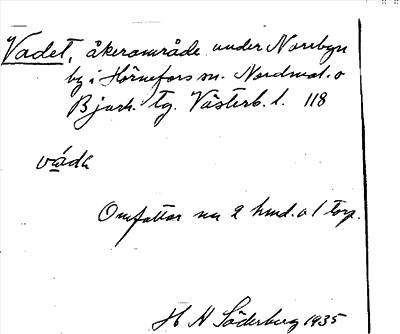 Vadet, åkerområde under Norrbyn
by i Hörnefors sn. Nordmal. o
Bjurh. tg. Västerb. l. 118
våda
Omfattar nu 2 hmd. o 1 torp.
H N Söderberg 1935